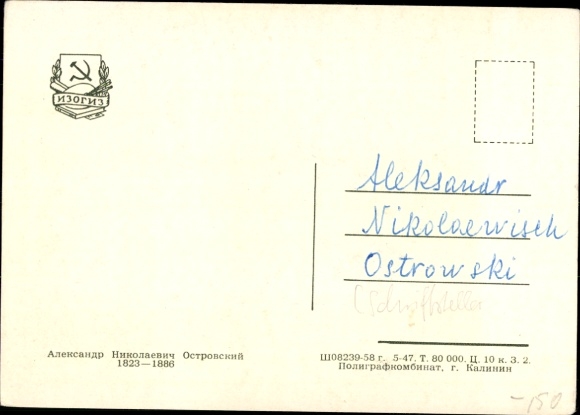 ИЗОГИЗ
Aleksandr
Nikolaewisch
Ostrowski
(Schriftsteller
Александр Николаевич Островский
1823—1886
Ш08239-58 г. 5-47. Т. 80 000. Ц. 10 к. З. 2.
Полиграфкомбинат, г. Калинин
-150